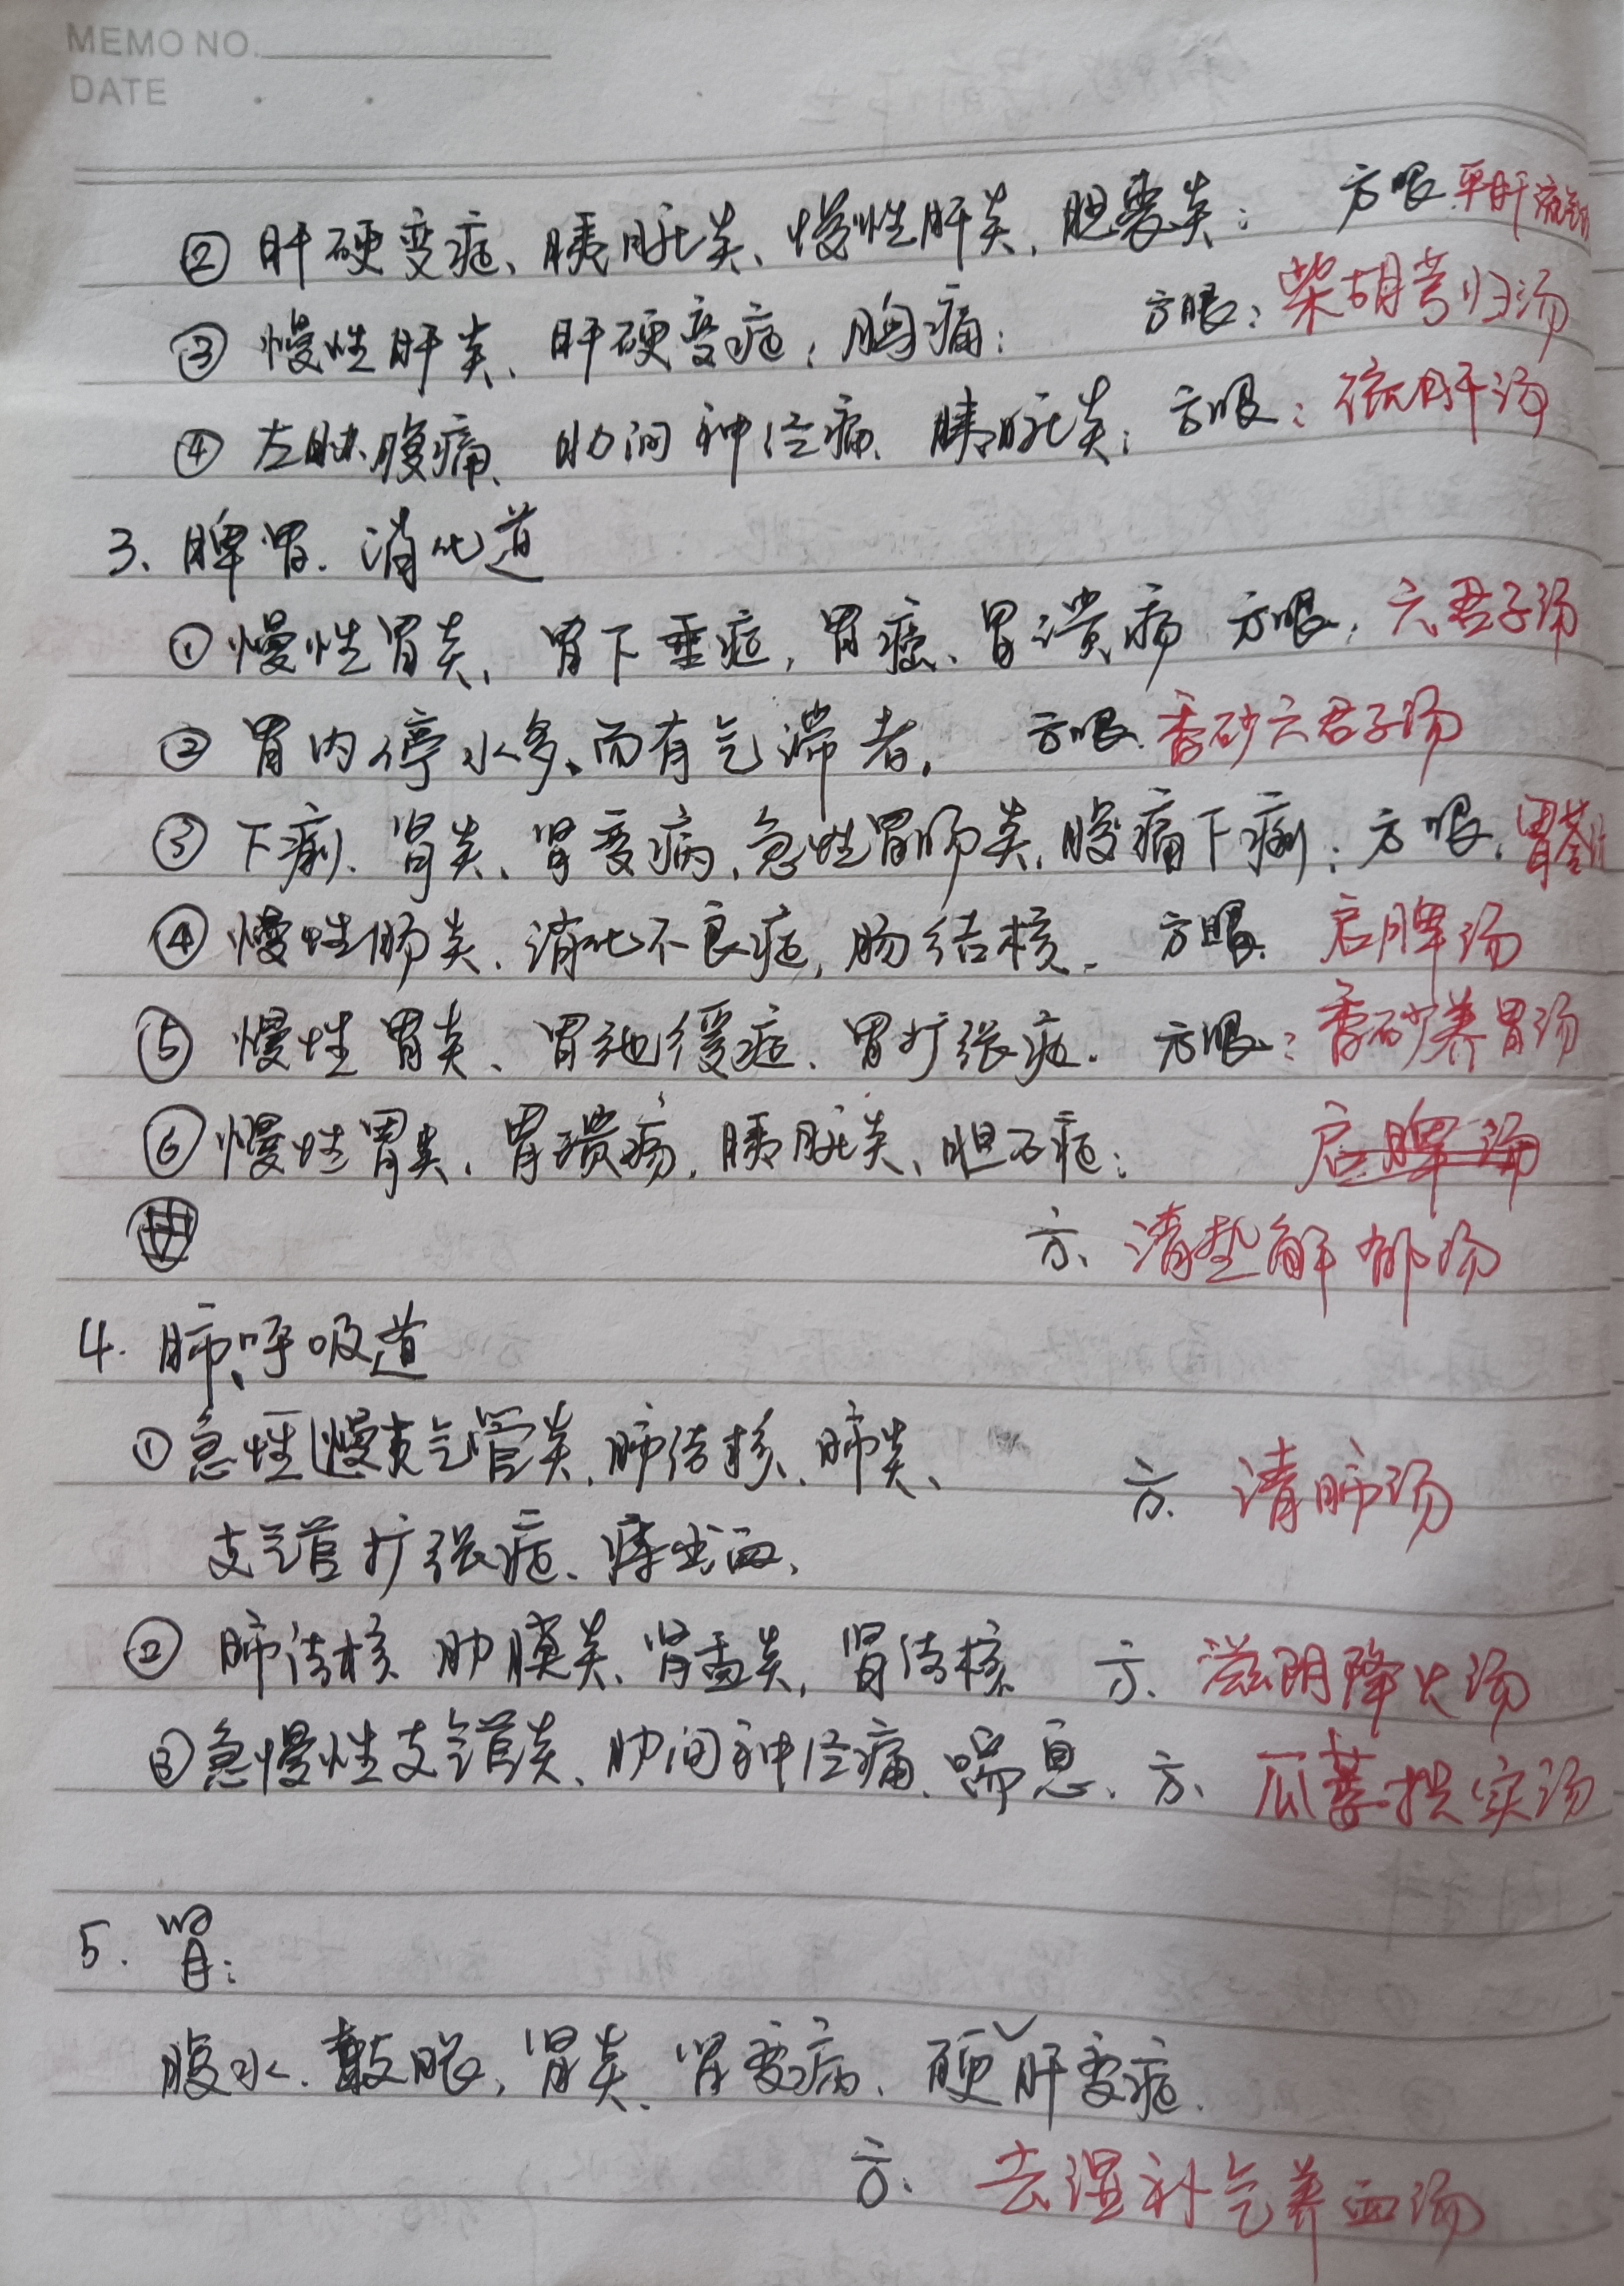 MEMO NO.
DATE
② 肝硬变症、胰脏炎、慢性肝炎、胆囊炎： 方眼 平肝流气
③ 慢性肝炎、肝硬变症；胸痛： 方眼：柴胡芎归汤
④ 左胁腹痛、肋间神经痛、胰脏炎； 方眼：疏肝汤
3、脾胃.消化道
① 慢性胃炎、胃下垂症，胃癌、胃溃疡 方眼：六君子汤
② 胃内停水多、而有气滞者。 方眼.香砂六君子汤
③ 下痢、肾炎、肾变病、急性胃肠炎，腹痛下痢；方眼：胃苓
④ 慢性肠炎、消化不良症，肠结核. 方眼. 启脾汤
⑤ 慢性胃炎、胃弛缓症、胃扩张症. 方眼：香砂养胃汤
⑥ 慢性胃炎、胃溃疡，胰脏炎、胆石症； 启脾汤
方、清热解郁汤
4. 肺、呼吸道
① 急性慢支气管炎、肺结核、肺炎、 方、清肺汤
支气管扩张症、痔出血、
② 肺结核 肋膜炎、肾盂炎，肾结核 方、滋阴降火汤
③ 急慢性支气管炎、肋间神经痛、喘息、方、瓜蒌枳实汤
5. 肾：
腹水.鼓胀，肾炎、肾变病、硬肝变症.
方、去湿补气养血汤